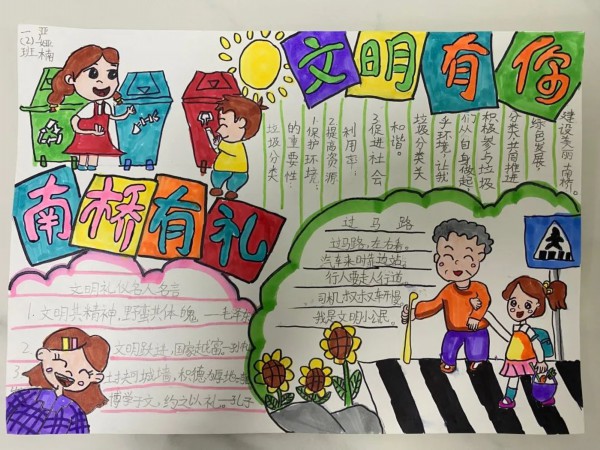 一
(2)
班
文明有你
南桥有礼
垃圾分类
的重要性:
1.保护环境;
2.提高资源
利用率;
3.促进社会
和谐。
垃圾分类关
乎环境,让我
们从自身做起
积极参与垃圾
分类共同推进
绿色发展,
建设美丽南桥。
过马路
过马路,左右看。
汽车来时靠边站。
行人要走人行道,
司机叔叔文车开慢。
我是文明小公民。
文明礼仪名人名言
1.文明其精神,野蛮其体魄 ——毛泽东
2 文明跃进,国家越富
3 城墙,积德为厚地
博学于文,约之以礼。—孔子